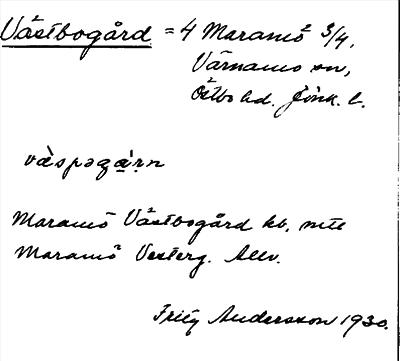 Västbogård = 4 Maramö 3/4,
Värnamo sn,
Östbo hd. Jönk. l.
vàspəgà̱ṛn
Maramö Västbogård kb, mtl
Maramö Vesterg. Allv.
Fritz Andersson 1930.